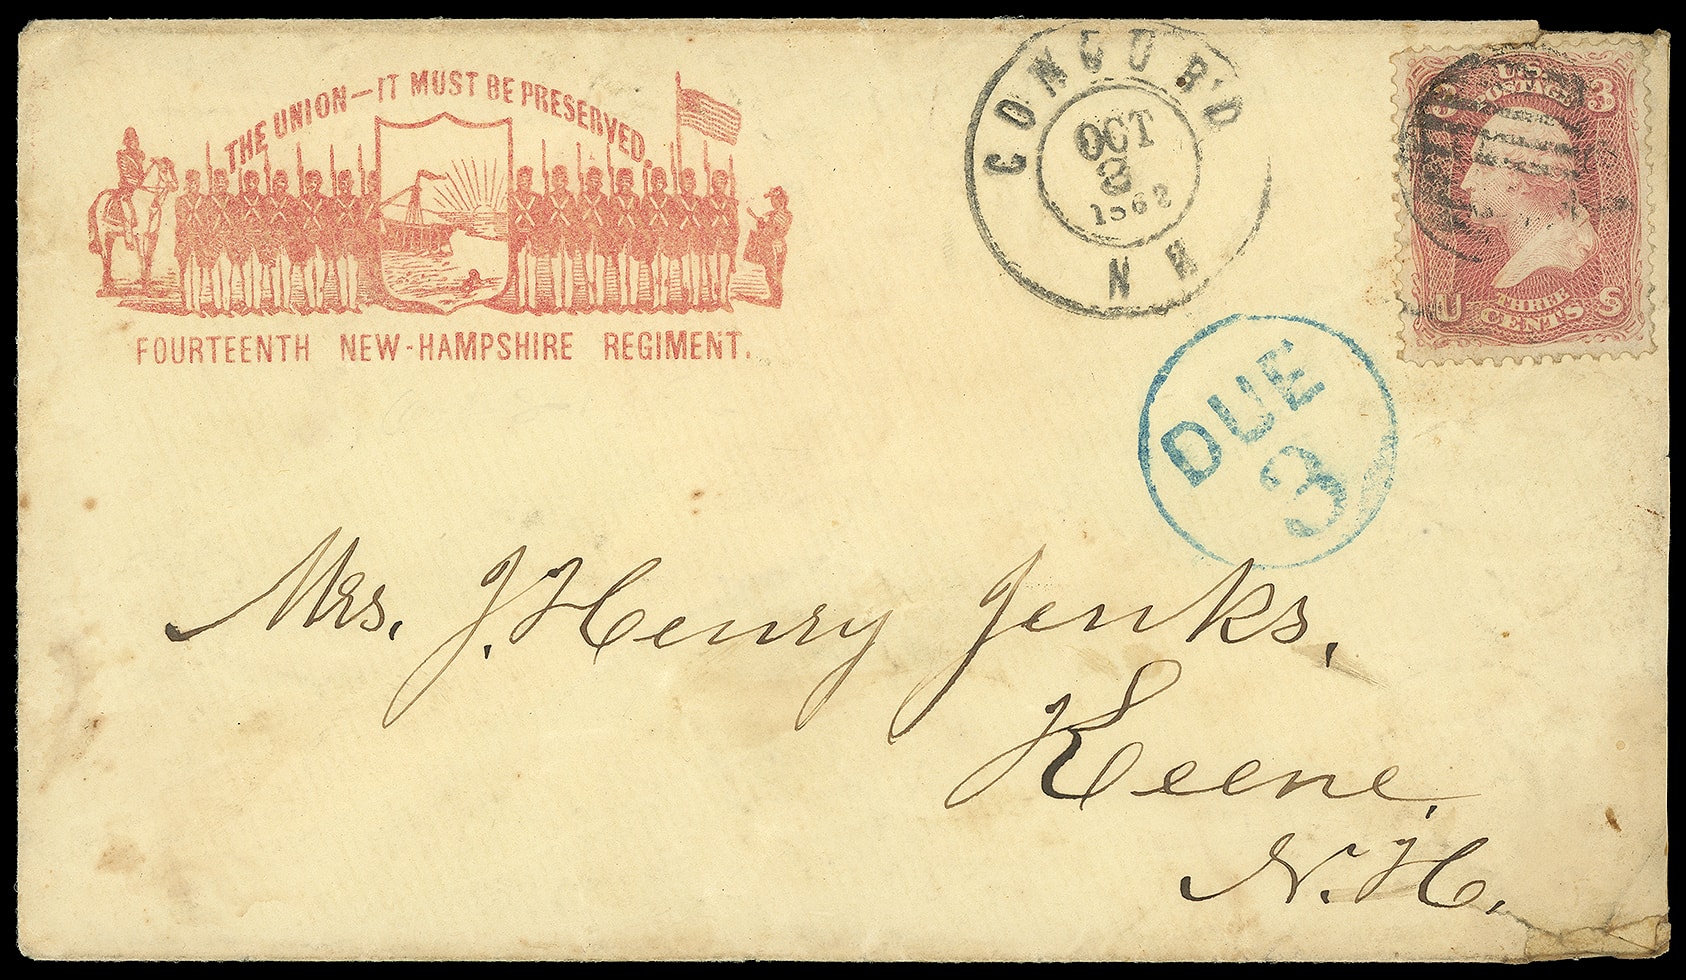 THE UNION—IT MUST BE PRESERVED.
FOURTEENTH NEW-HAMPSHIRE REGIMENT.
CONCORD
OCT
3
1862
N H
U.S.
POSTAGE
3 3
THREE
CENTS
U S
DUE
3
Mrs. J. Henry Jenks,
Keene,
N. H.